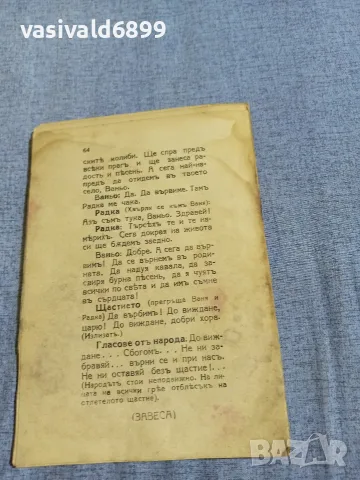 vasivald6899
64
скитѣ колиби. Ще спра предъ
всѣки прагъ и ще занеса ра-
дость и пѣсень. А сега най-на-
предъ да отидемъ въ твоето
село, Ваньо.
Ваньо: Да. Да вървиме. Тамъ
Радка ме чака.
Радка (Хвърля се къмъ Ваня):
Азъ съмъ тука, Ваньо. Здравей!
Радка: Търсѣхъ те и те на-
мѣрихъ. Сега докрая на живота
си ще бѫдемъ заедно.
Ваньо: Добре. А сега да вър-
вимъ! Да се върнемъ въ роди-
ната. Да надуя кавала, да за-
свиря бурна пѣсень, да я чуятъ
всички по свѣта и да имъ съмне
въ сърдцата!
Щастието (прегръща Ваня и
Радка) Да вървимъ! До виждане,
царю! До виждане, добри хора.
(Излизатъ.)
Гласове отъ народа. До виж-
дане... Сбогомъ... Не ни за-
бравяй... върни се и при насъ.
Не ни оставяй безъ щастие!...
(Народътъ стои неподвижно. На ли-
цата на всички грѣе отблѣсъкъ на
отлетелото щастие).
(ЗАВЕСА)
BAZAR